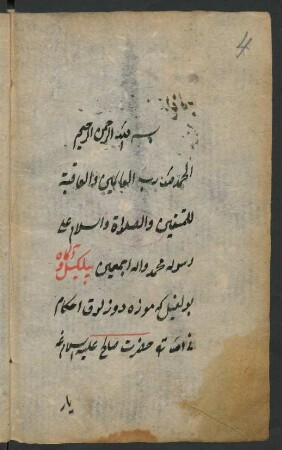 4
بسم الله الرحمن الرحیم
الحمد لله رب العالمین والعاقبة
للمتقین والصلاة والسلام علی
رسوله محمد واله اجمعین بیلکیل و آکاه
بولغیل که موزه دوزلوق احکام
حضرت صالح علیه السلام نه
یار